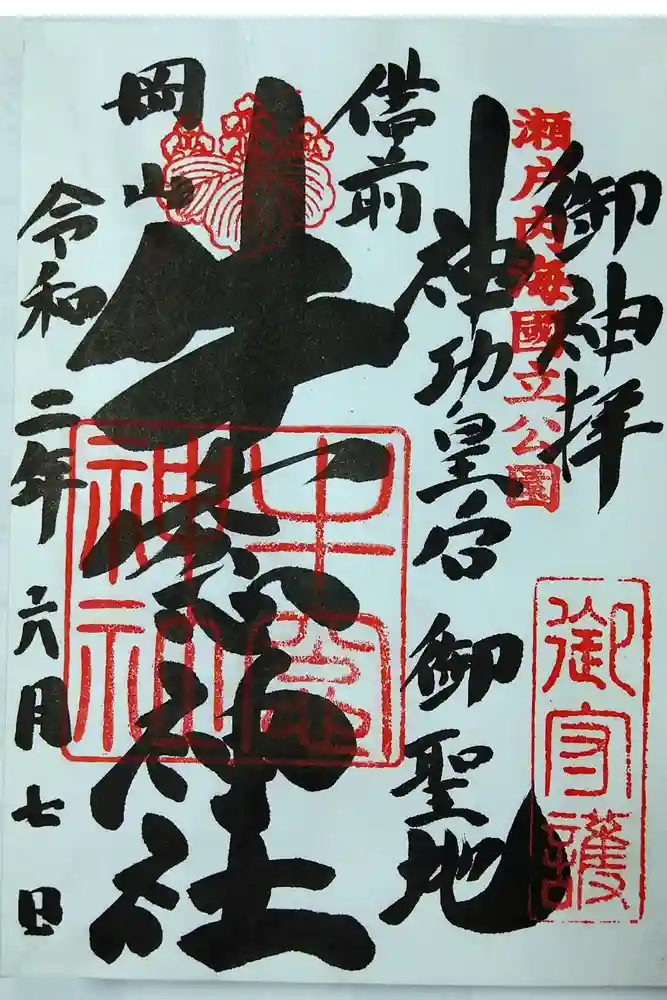 御神拝
瀬戸内海國立公園
御守護
神功皇后御聖地
備前
牛窓神社
牛窓神社
岡山
令和二年六月七日